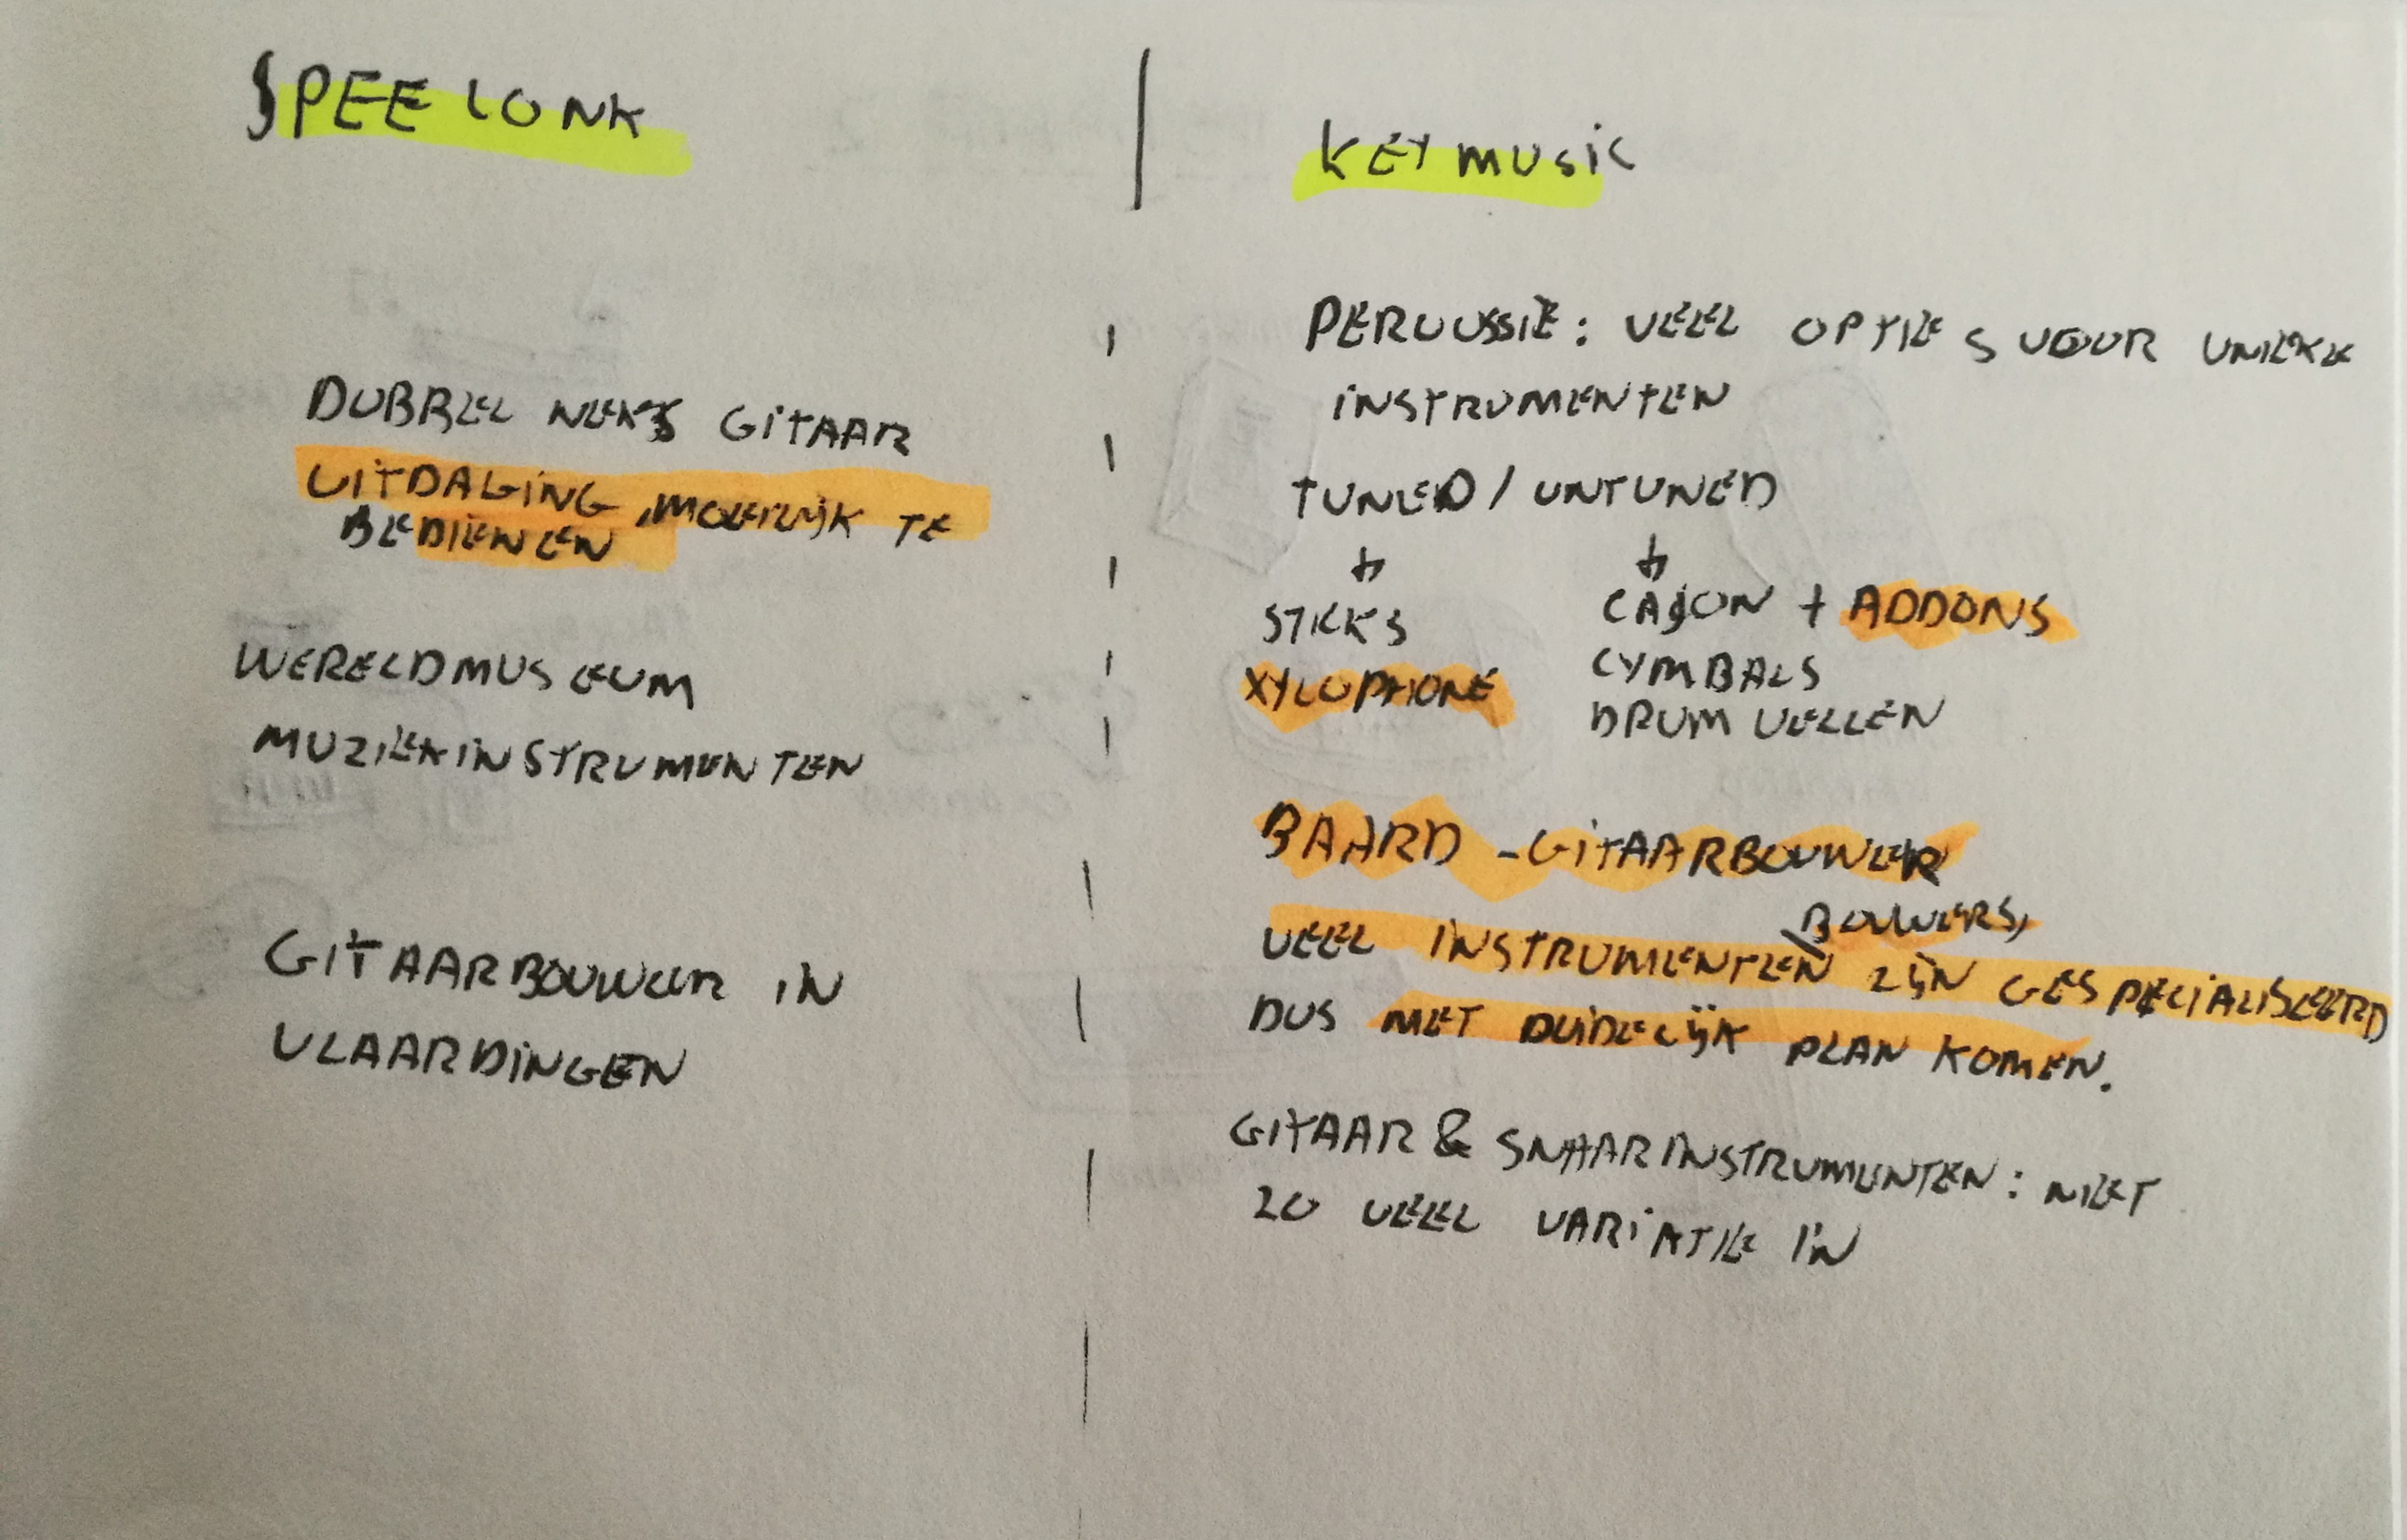 SPEELONK
DUBBEL NEKS GITAAR
UITDAGING, MOEILIJK TE
BEDIENEN
WERELDMUSEUM
MUZIEKINSTRUMENTEN
GITAARBOUWER IN
VLAARDINGEN
KEYMUSIC
PERCUSSIE: VEEL OPTIES VOOR UNIEKE
INSTRUMENTEN
TUNED / UNTUNED
STICKS
XYLOPHONE
CAJON + ADDONS
CYMBALS
DRUM VELLEN
BAARD - GITAARBOUWER
BOUWERS,
VEEL INSTRUMENTEN ZIJN GESPECIALISEERD
DUS MET DUIDELIJK PLAN KOMEN.
GITAAR & SNAARINSTRUMENTEN: NIET
ZO VEEL VARIATIE IN